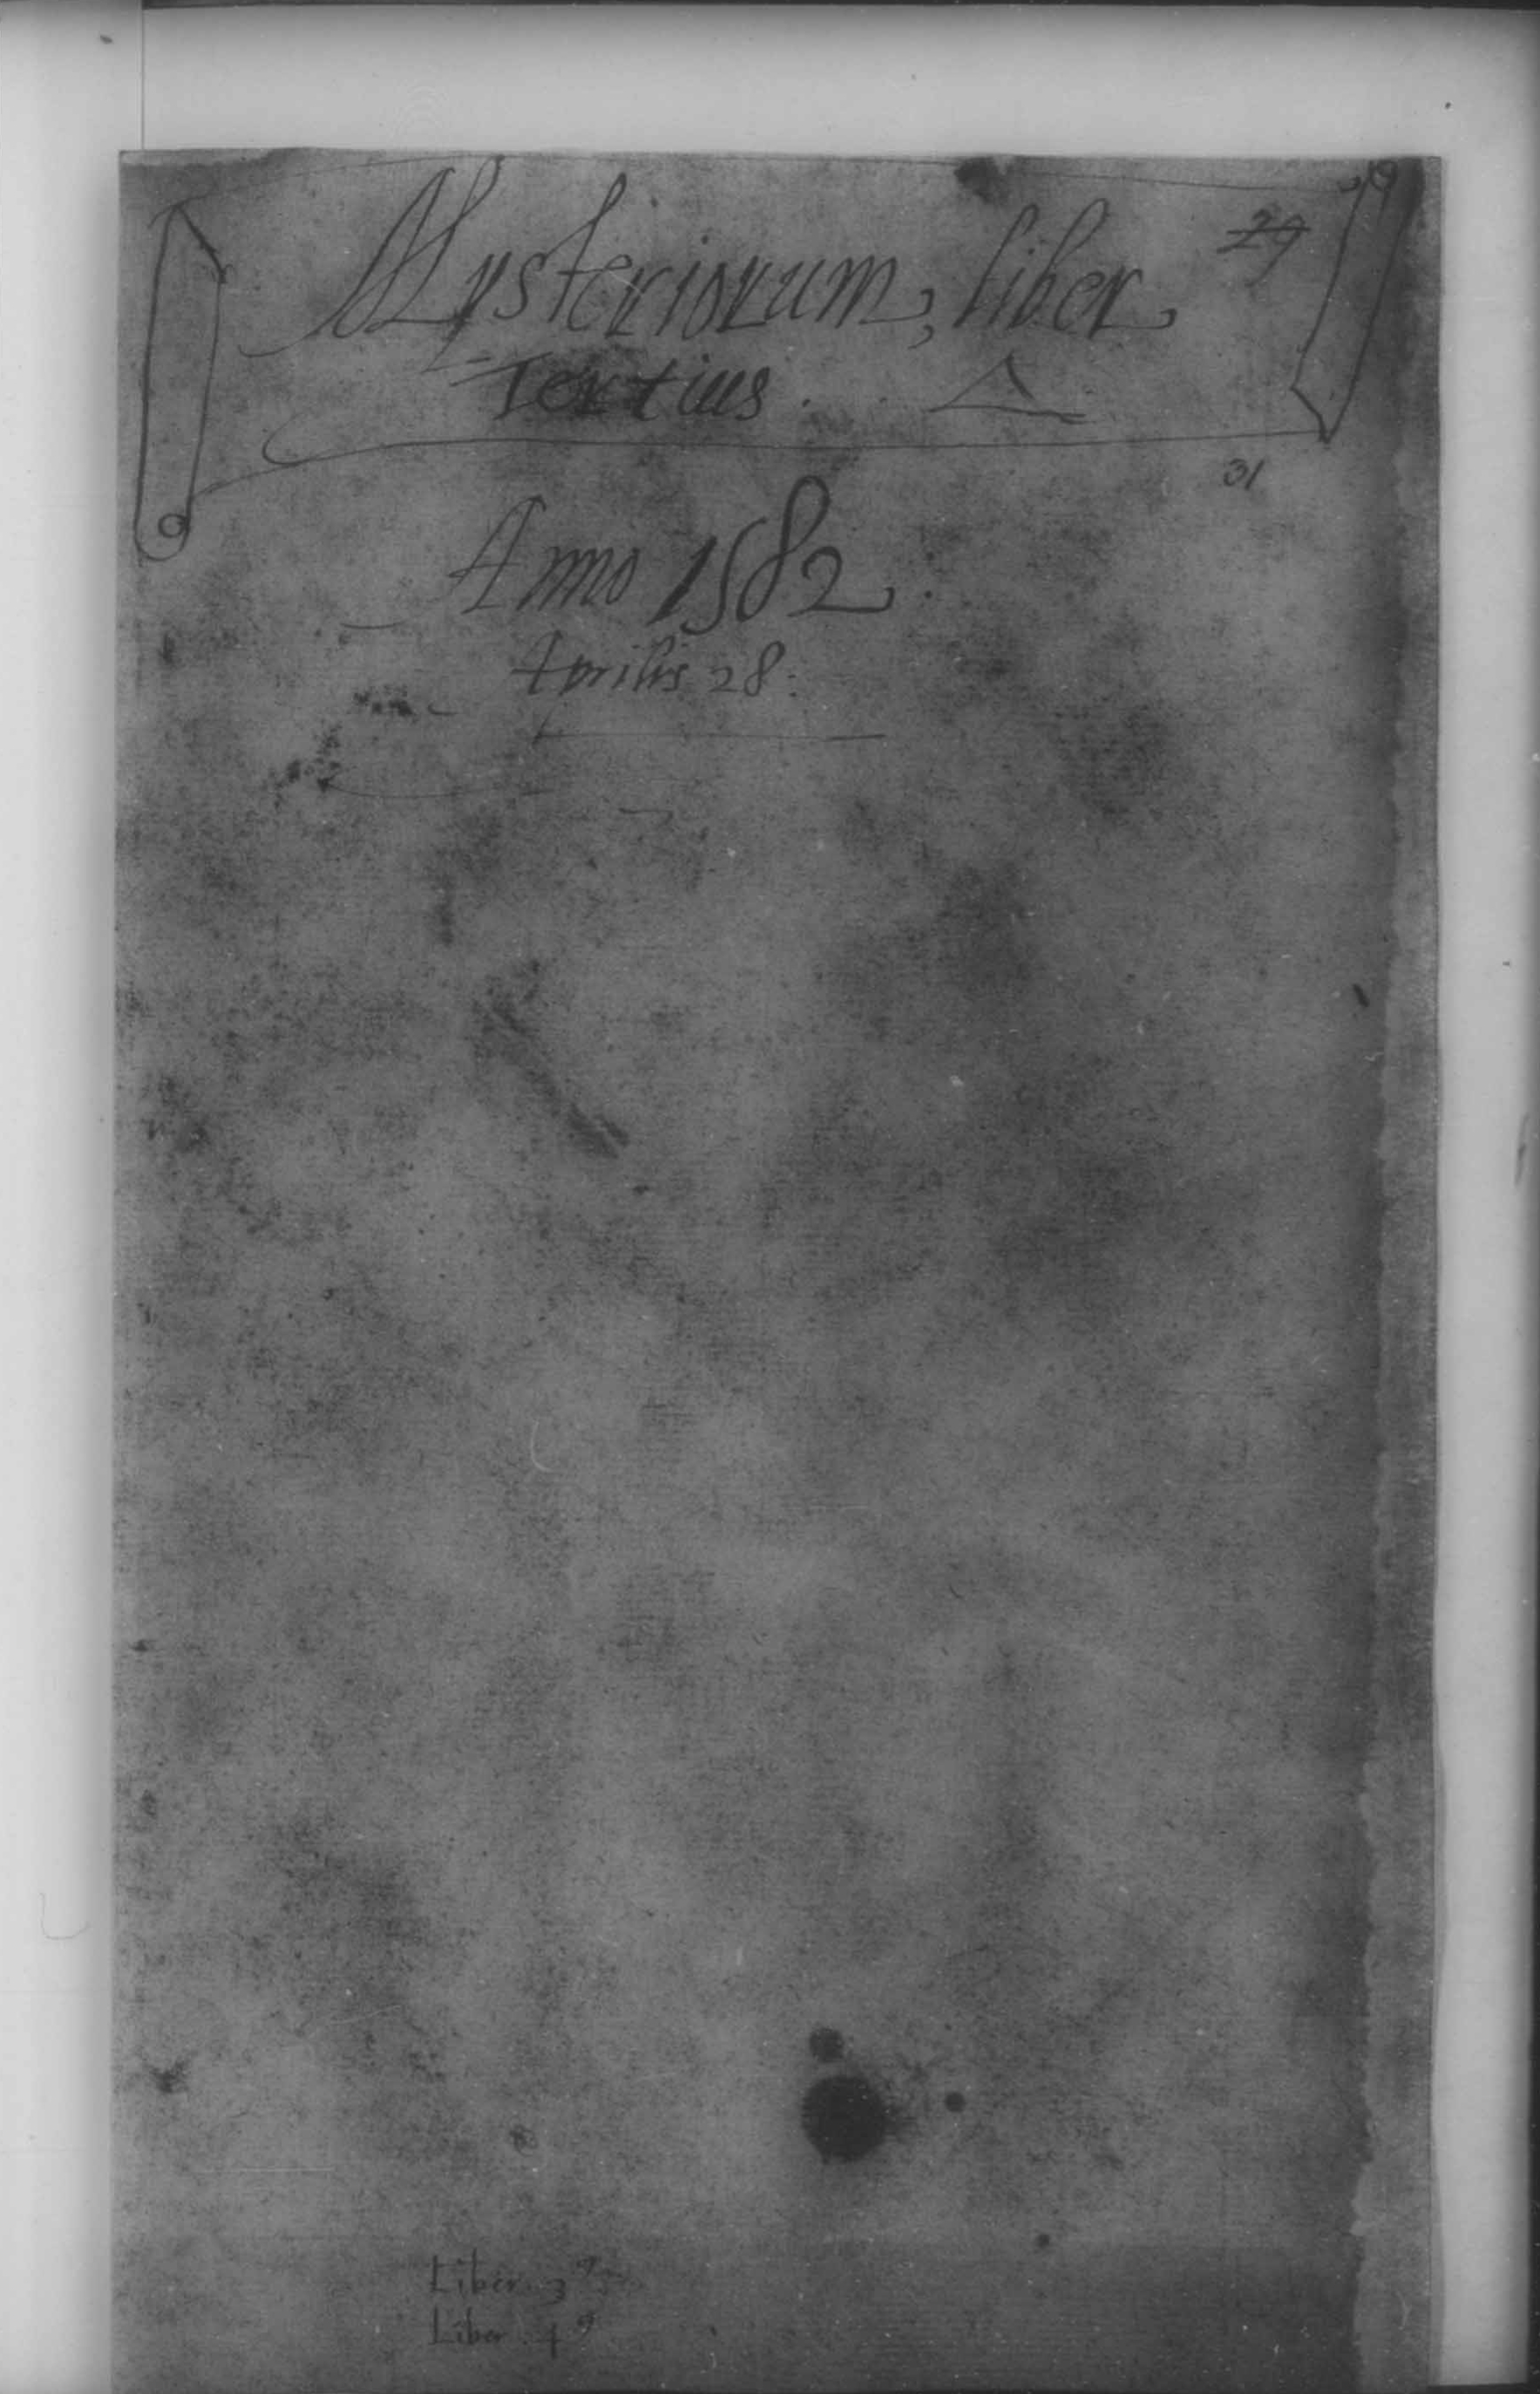 Mysteriorum, liber 29
Tertius. Δ
31
Anno 1582.
Aprilis 28:
Liber. 3⁹
Liber. 4⁹